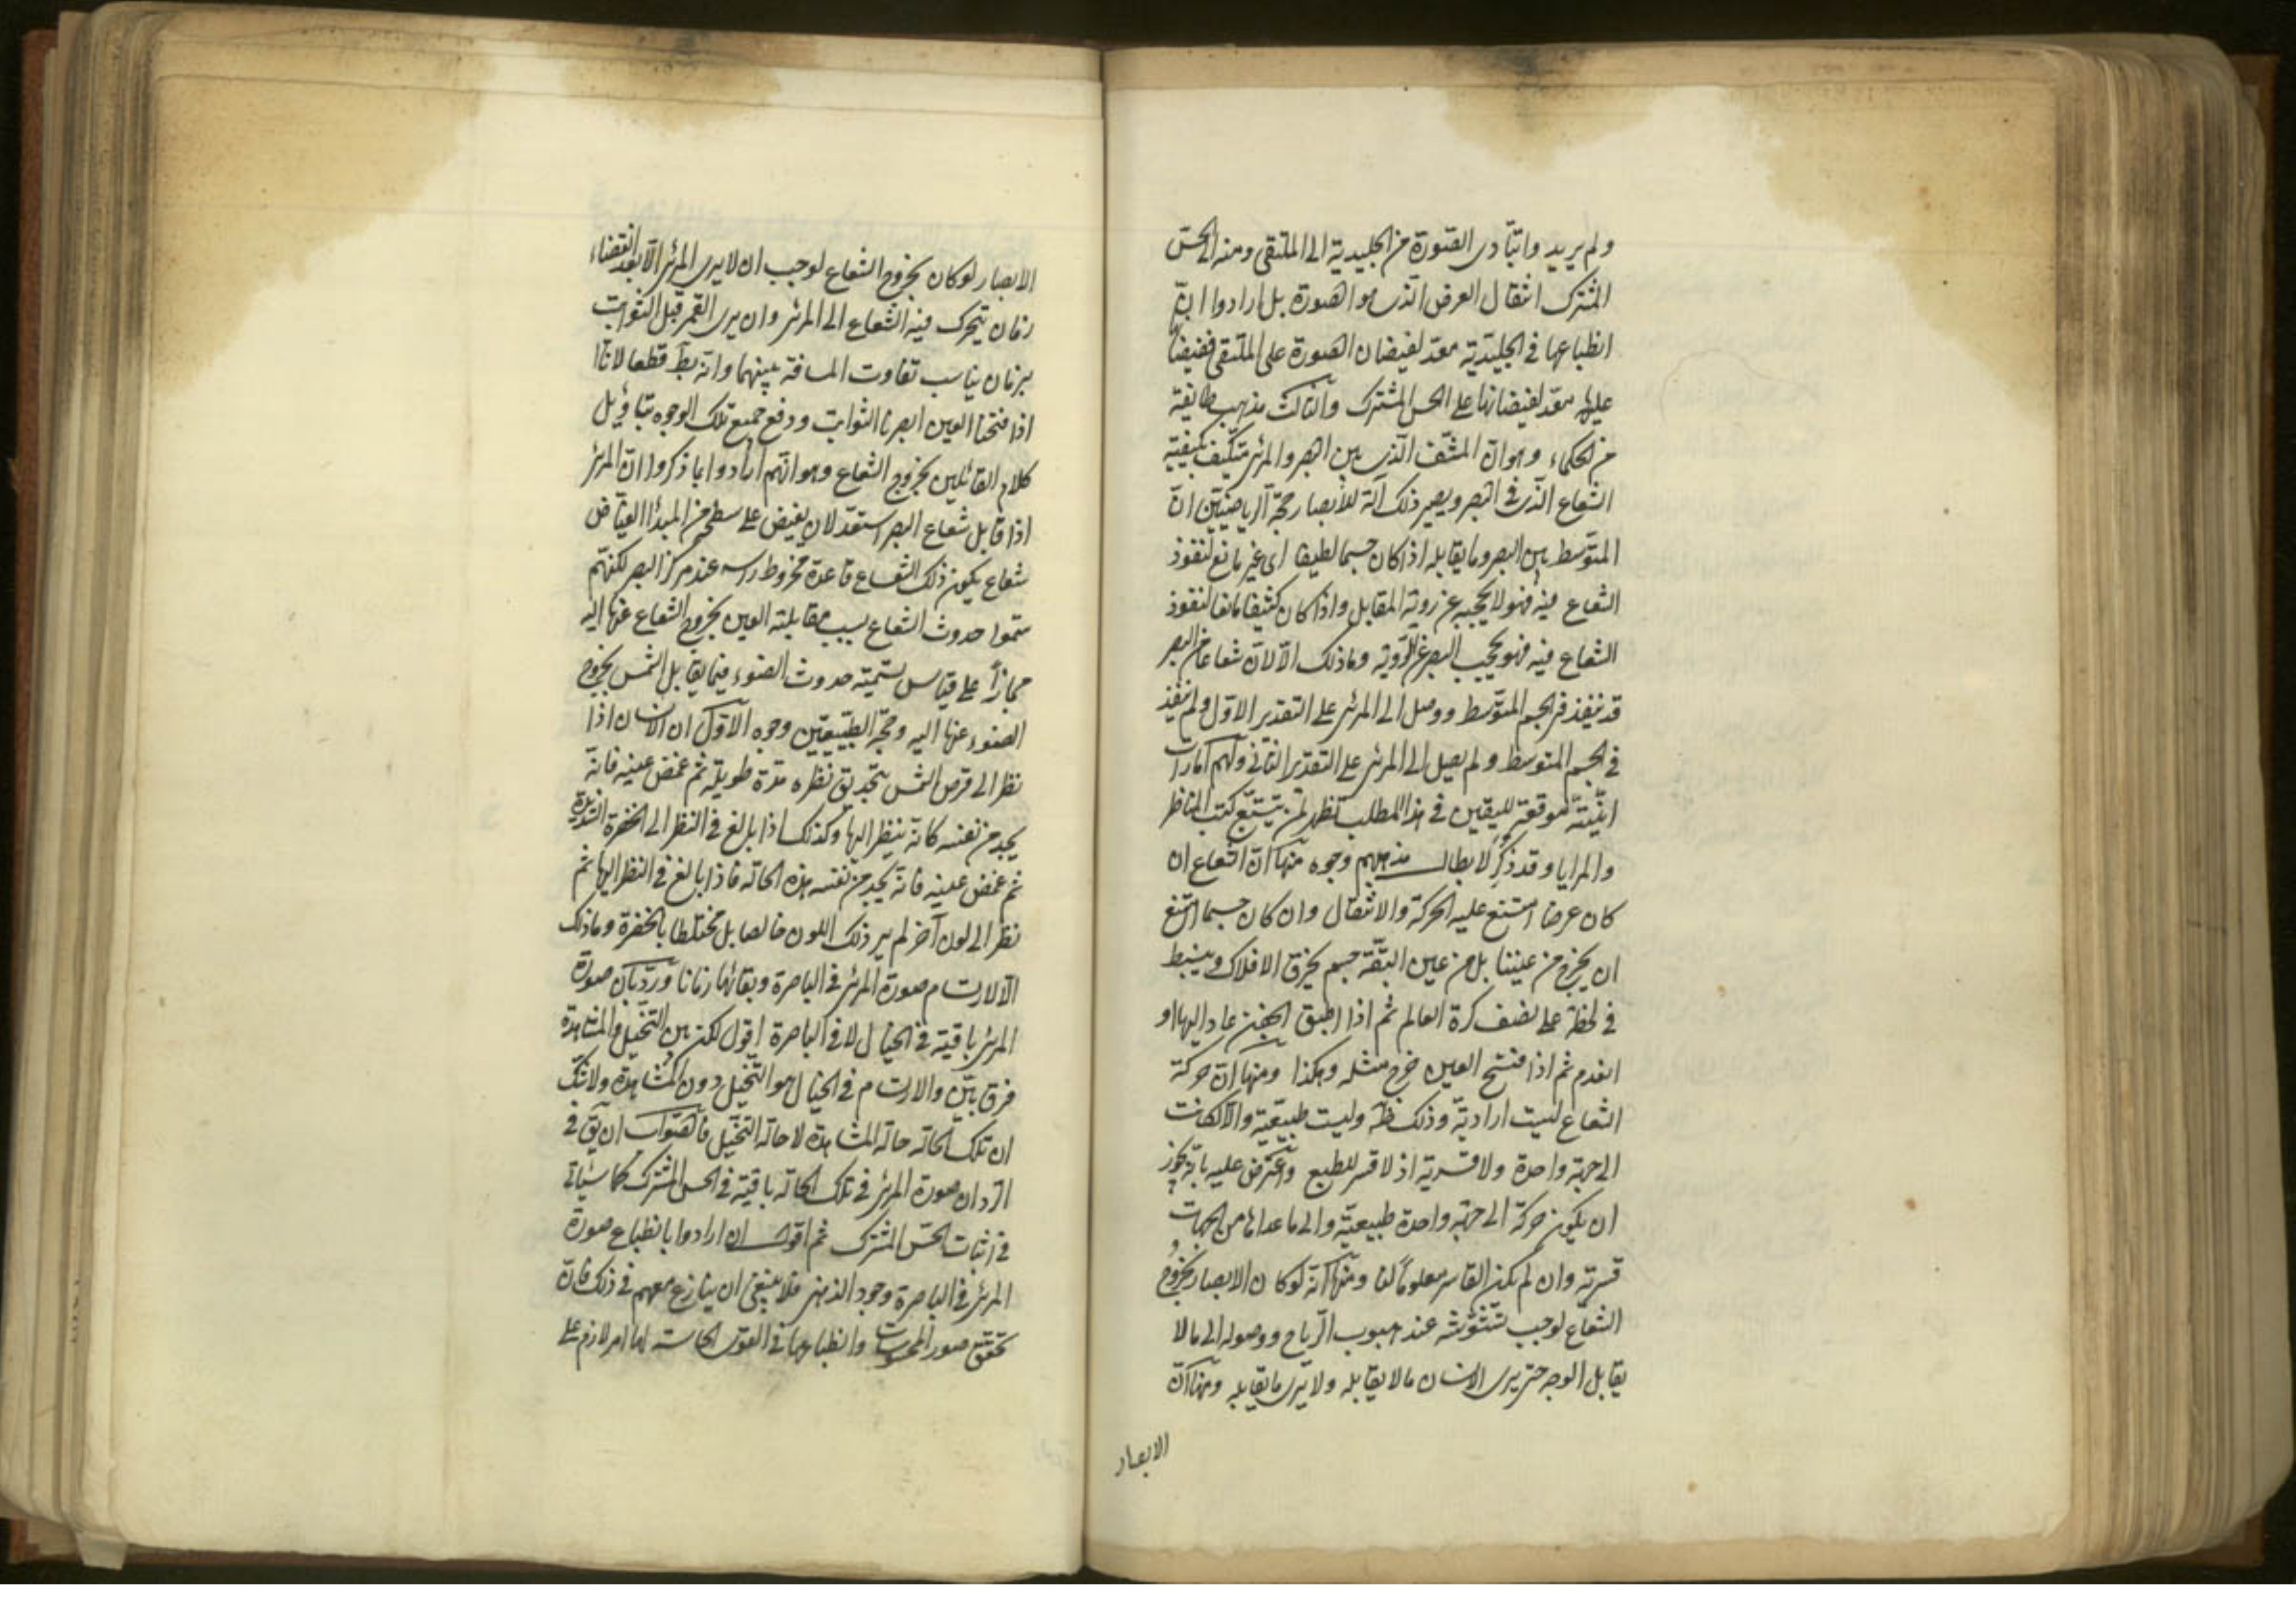 ولم يريدوا بتأدى الصورة من الجليدية الى الملتقى ومنه الى الحس
المشترك انتقال العرض الذى هو الصورة بل ارادوا ان
انطباعها فى الجليدية معد لفيضان الصورة على الملتقى وفيضانها
عليه معد لفيضانها على الحس المشترك والثالث مذهب طايفة
من الحكماء وهو ان المشف الذى بين البصر والمرئى متكيف بكيفية
الشعاع الذى فى البصر ويصير ذلك آلة للابصار حجة الرياضيين ان
المتوسط بين البصر وما يقابله اذا كان جسما لطيفا اى غير مانع لنفوذ
الشعاع فيه فهو لا يحجبه عن روية المقابل واذا كان كثيفا مانعا لنفوذ
الشعاع فيه فهو يحجب البصر عن الروية وما ذلك الا لان شعاعا من البصر
قد نفذ فى الجسم المتوسط ووصل الى المرئى على التقدير الاول ولم ينفذ
فى الجسم المتوسط ولم يصل الى المرئى على التقدير الثانى ولهم امارات
انية موقعة لليقين فى هذا المطلب تظهر لمن يتتبع كتب المناظر
والمرايا وقد ذكر لابطال مذهبهم وجوه منها ان الشعاع ان
كان عرضا امتنع عليه الحركة والانتقال وان كان جسما امتنع
ان يخرج من عيننا بل من عين البقة جسم يخرق الافلاك وينبسط
فى لحظة على نصف كرة العالم ثم اذا اطبق الجفن عاد اليها او
انعدم ثم اذا فتح العين خرج مثله وهكذا ومنها ان حركة
الشعاع ليست ارادية وذلك ظ وليست طبيعية والا لكانت
الى جهة واحدة ولا قسرية اذ لا قسر للطبع واعترض عليه بانه يجوز
ان يكون حركة الى جهة واحدة طبيعية والى ما عداها من الجهات
قسرية وان لم يكن القاسر معلوما لنا ومنها انه لو كان الابصار بخروج
الشعاع لوجب تشوشه عند هبوب الرياح ووصوله الى ما لا
يقابل الوجه حتى يرى الانسان ما لا يقابله ولا يرى ما يقابله ومنها ان
الابصار
الابصار لو كان بخروج الشعاع لوجب ان لا يرى المرئى الا بعد انقضاء
زمان يتحرك فيه الشعاع الى المرئى وان يرى القمر قبل الثوابت
بزمان يناسب تفاوت المسافة بينهما وانه بط قطعا لانا
اذا فتحنا العين ابصرنا الثوابت ودفع جميع تلك الوجوه بتاويل
كلام القائلين بخروج الشعاع وهو انهم ارادوا بما ذكروا ان المرئى
اذا قابل شعاع البصر استعد لان يفيض على سطحه من المبدأ الفياض
شعاع يكون ذلك الشعاع قاعدة مخروط راسه عند مركز البصر لكنهم
سموا حدوث الشعاع بسبب مقابلته العين بخروج الشعاع عنها اليه
مجازا على قياس تسمية حدوث الضوء فيما يقابل الشمس بخروج
الضوء عنها اليه وحجة الطبيعيين وجوه الاول ان الانسان اذا
نظر الى قرص الشمس بتحديق نظره مدة طويلة ثم غمض عينيه فانه
يجد من نفسه كانه ينظر اليها وكذلك اذا بالغ فى النظر الى الخضرة الشديدة
ثم غمض عينيه فانه يجد من نفسه هذه الحالة فاذا بالغ فى النظر اليها ثم
نظر الى لون آخر لم ير ذلك اللون خالصا بل مختلطا بالخضرة وما ذلك
الا لارتسام صورة المرئى فى الباصرة وبقائها زمانا ورد بان صورة
المرئى باقية فى الخيال لا فى الباصرة اقول لكن بين التخيل والمشاهدة
فرق بين والارتسام فى الخيال هو التخيل دون المشاهدة ولا شك
ان تلك الحالة حالة المشاهدة لا حالة التخيل فالصواب ان يق فى
الرد ان صورة المرئى فى تلك الحالة باقية فى الحس المشترك كما سياتى
فى اثبات الحس المشترك ثم اقول ان ارادوا بانطباع صورة
المرئى فى الباصرة وجود الذهنى فلا ينبغى ان ينازع معهم فى ذلك فان
تحقق صور المحسوسات وانطباعها فى القوى الحاسة امر لازم على